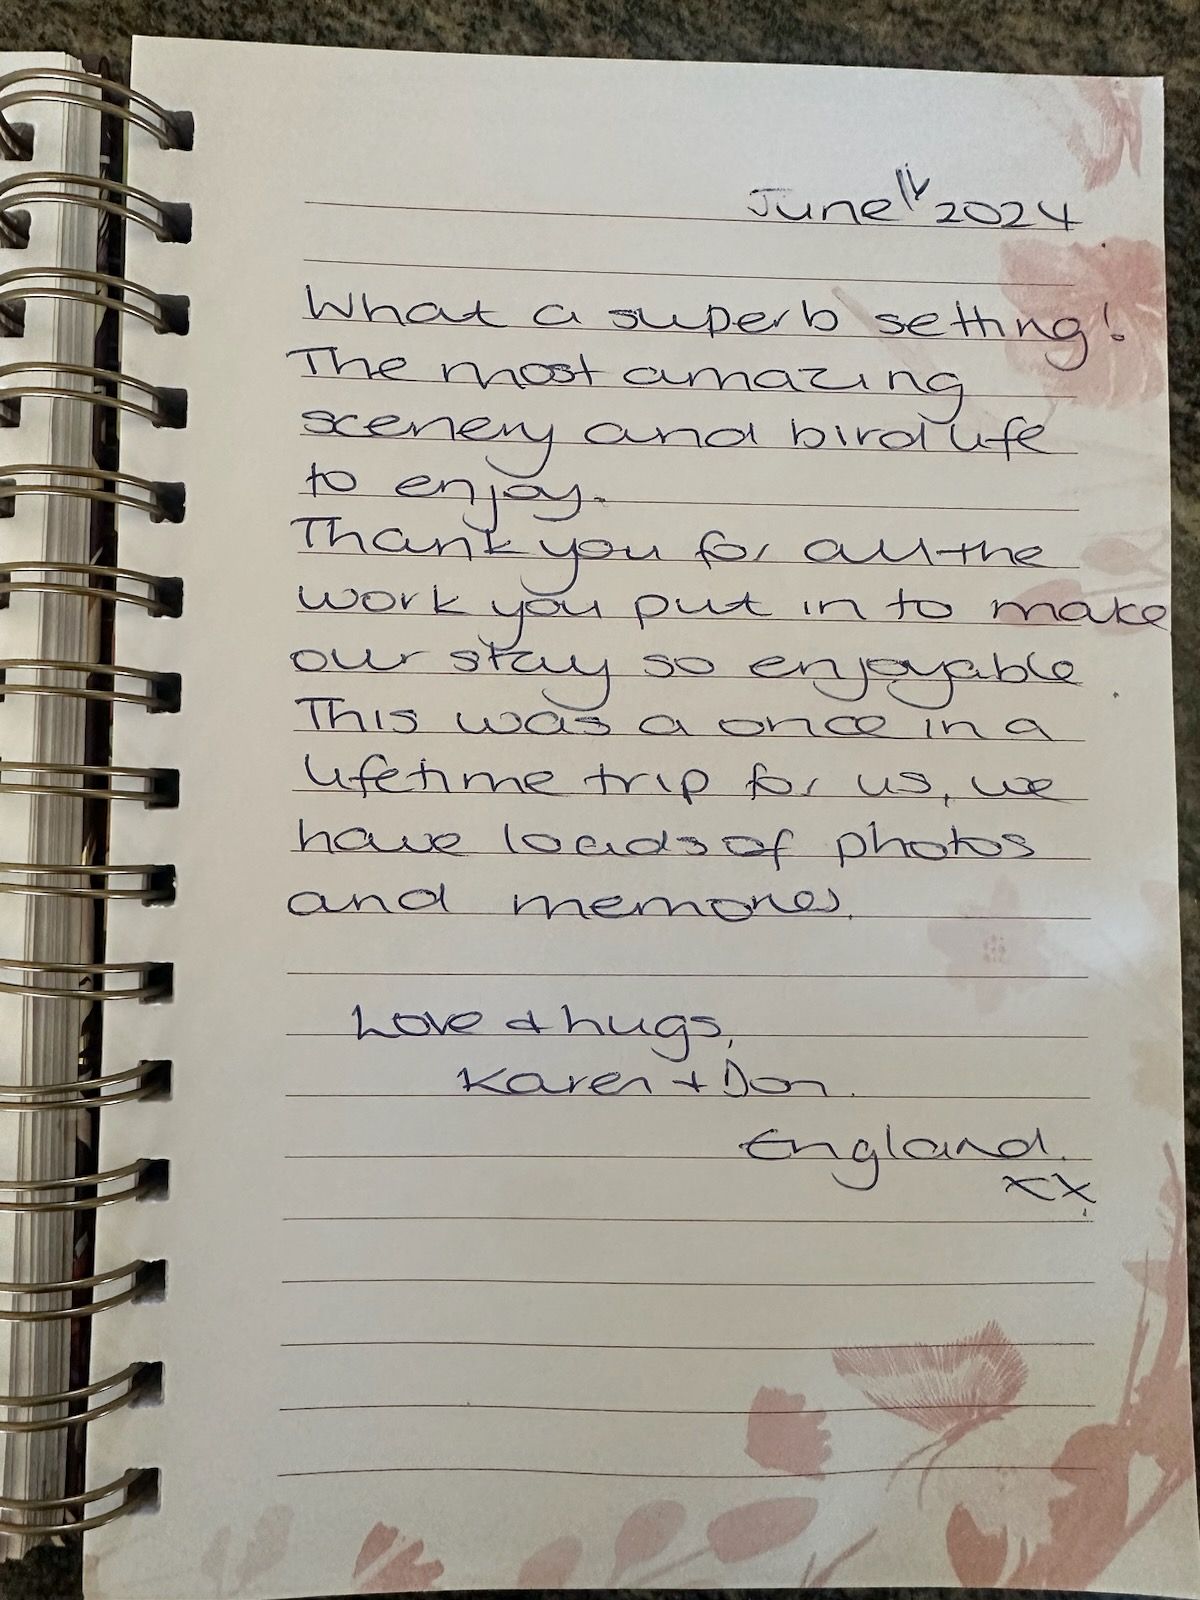 June 2024
What a superb setting!
The most amazing
scenery and bird life
to enjoy.
Thank you for all the
work you put in to make
our stay so enjoyable
This was a once in a
lifetime trip for us, we
have loads of photos
and memories.
Love & hugs,
Karen + Don.
England.
xx